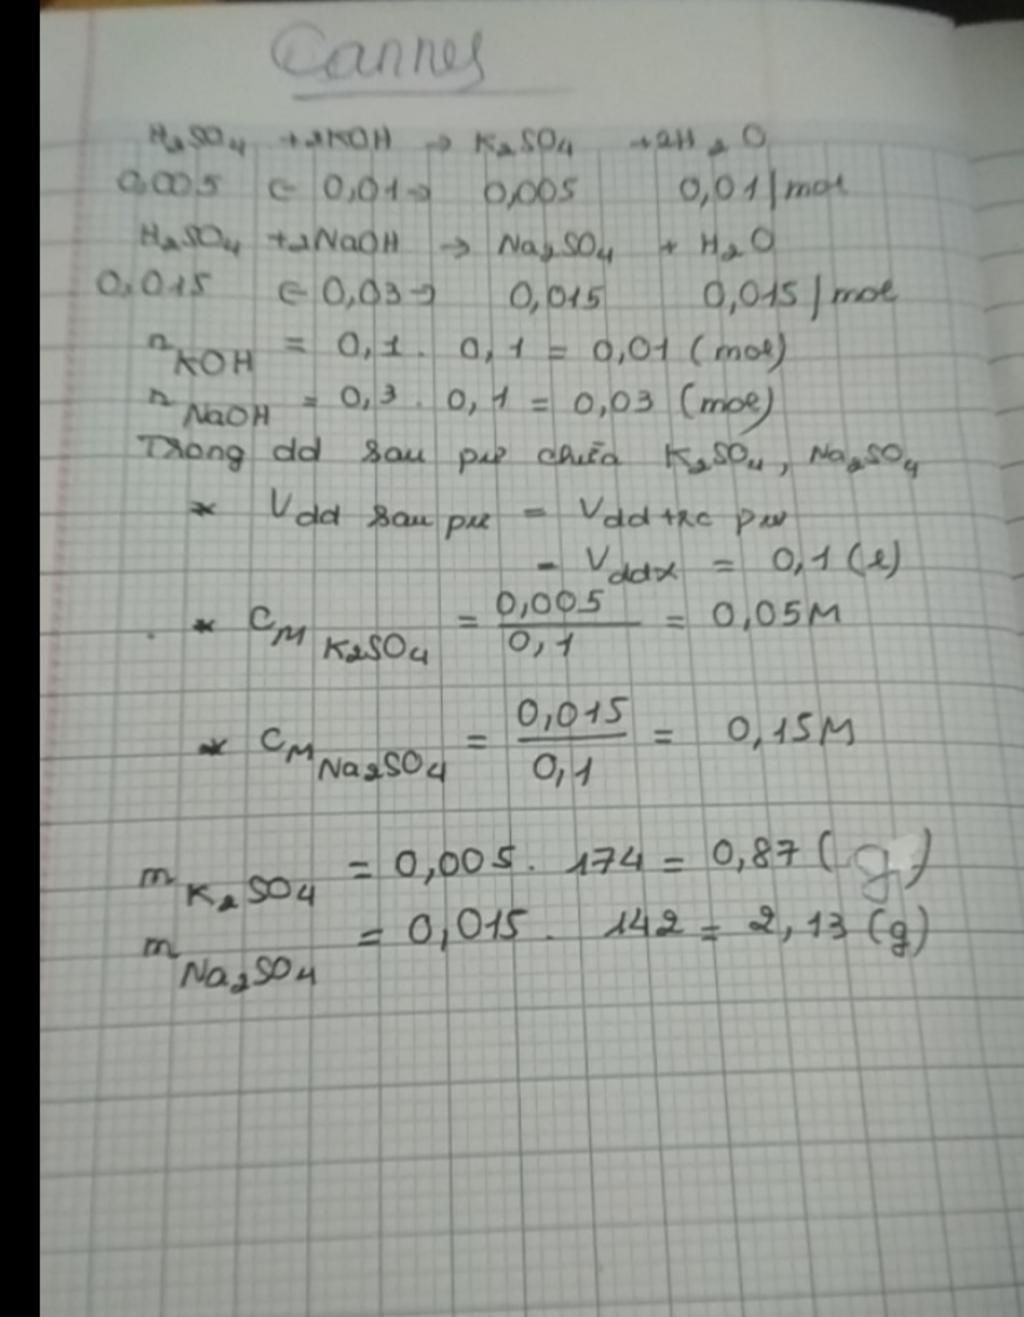 Cannes
H₂SO₄ +2KOH → K₂SO₄ +2H₂O
0,005 ← 0,01→ 0,005 0,01/mol
H₂SO₄ +2NaOH → Na₂SO₄ + H₂O
0,015 ← 0,03→ 0,015 0,015/mol
n KOH = 0,1 . 0,1 = 0,01 (mol)
n NaOH = 0,3 . 0,1 = 0,03 (mol)
Trong dd sau pư chứa K₂SO₄, Na₂SO₄
* Vdd sau pư = Vdd trc pư
= Vddx = 0,1 (l)
* CM K₂SO₄ = 0,005/0,1 = 0,05M
* CM Na₂SO₄ = 0,015/0,1 = 0,15M
m K₂SO₄ = 0,005 . 174 = 0,87 (g)
m Na₂SO₄ = 0,015 . 142 = 2,13 (g)